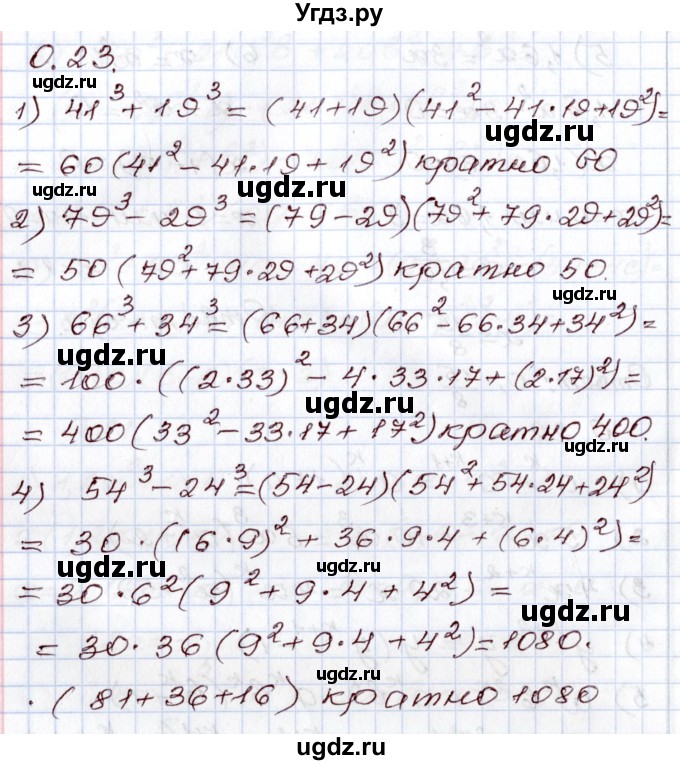 Угдз.ру
0.23.
ugdz.ru
ugdz.ru
1) 41³ + 19³ = (41+19)(41² - 41·19 + 19²) =
ugdz.ru
= 60(41² - 41·19 + 19²) кратно 60
ugdz.ru
ugdz.ru
2) 79³ - 29³ = (79-29)(79² + 79·29 + 29²) =
ugdz.ru
= 50(79² + 79·29 + 29²) кратно 50.
ugdz.ru
3) 66³ + 34³ = (66+34)(66² - 66·34 + 34²) =
ugdz.ru
= 100·((2·33)² - 4·33·17 + (2·17)²) =
ugdz.ru
= 400(33² - 33·17 + 17²) кратно 400.
ugdz.ru
4) 54³ - 24³ = (54-24)(54² + 54·24 + 24²)
ugdz.ru
= 30·((6·9)² + 36·9·4 + (6·4)²) =
ugdz.ru
= 30·6²(9² + 9·4 + 4²) =
ugdz.ru
= 30·36(9² + 9·4 + 4²) = 1080·
ugdz.ru
·(81+36+16) кратно 1080
ugdz.ru
ugdz.ru